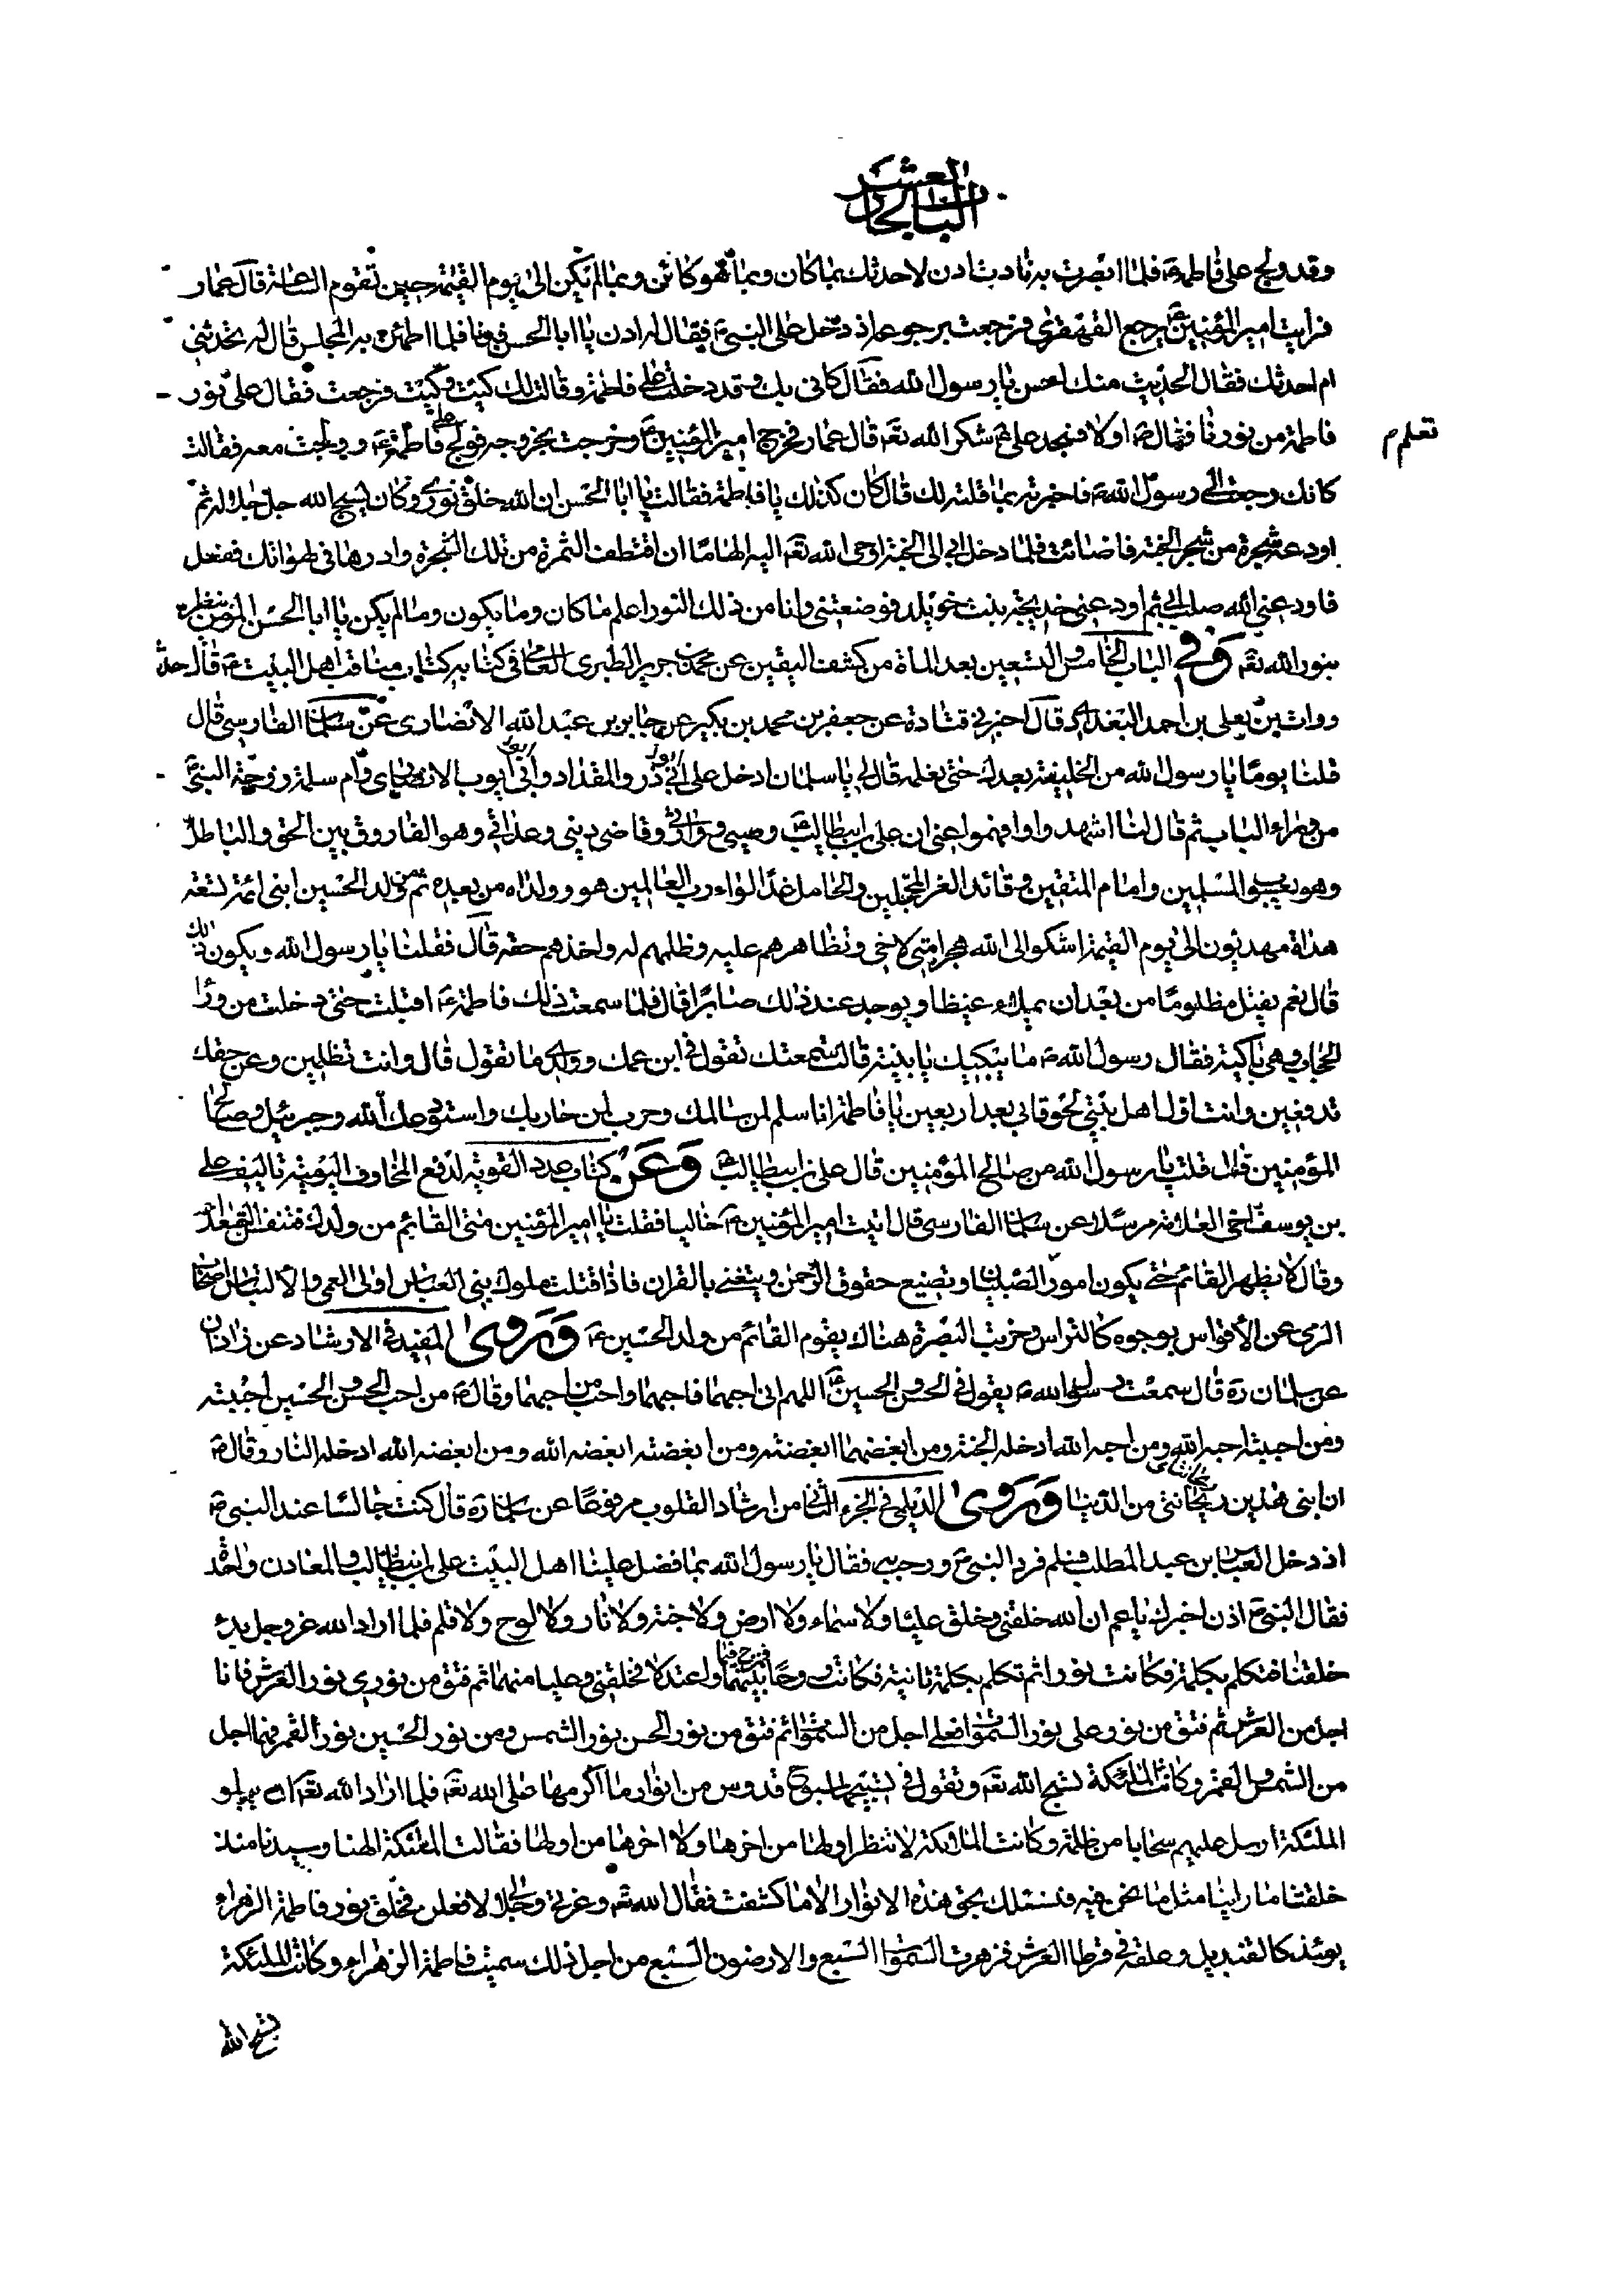 الباب الحادي العشر
وقد ولج على فاطمة ع فلما ابصرت به نادت ادن لاحدثك بما كان وبما هو كائن وبما لم يكن الى يوم القيمة حين تقوم الساعة قال عمار
فرايت امير المؤمنين ع يرجع القهقرى فرجعت برجوعه اذ دخل على النبي ص فقال له ادن يا ابا الحسن فدنا فلما اطمئن به المجلس قال له تحدثني
ام احدثك فقال الحديث منك احسن يا رسول الله فقال كاني بك وقد دخلت على فاطمة وقالت لك كيت وكيت فرجعت فقال علي نور
فاطمة من نورنا فقال ص اولا تعلم فسجد علي ع شكر الله تعه قال عمار فخرج امير المؤمنين ع وخرجت بخروجه فولج على فاطمة ع وولجت معه فقالت
كانك رجعت الى رسول الله ص فاخبرته بما قلته لك قال كان كذلك يا فاطمة فقالت يا ابا الحسن ان الله خلق نوري وكان يسبح الله جل جلاله ثم
اودعه شجرة من شجر الجنة فاضائت فلما دخل ابي الى الجنة اوحى الله تعه اليه الهاما ان اقتطف الثمرة من تلك الشجرة وادرها في لهواتك ففعل
فاودعني الله صلب ابي ثم اودعني خديجة بنت خويلد فوضعتني وانا من ذلك النور اعلم ما كان وما يكون وما لم يكن يا ابا الحسن المؤمن ينظر
بنور الله تعه وفي الباب الخامس والتسعين بعد المأة من كشف اليقين عن محمد بن جرير الطبري العامي في كتابه كتاب مناقب اهل البيت ع قال حدثنا
بن يعلي بن احمد البغدادي قال اخبرني قتادة عن جعفر بن محمد بن بكير عن جابر بن عبد الله الانصاري عن سلمان الفارسي قال
قلنا يوما يا رسول الله من الخليفة بعدك حتى نعلمه قال لي يا سلمان ادخل علي ابي ذر والمقداد وابي ايوب الانصاري وام سلمة زوجة النبي ص
من وراء الباب ثم قال لنا اشهدوا وافهموا عني ان علي بن ابيطالب ع وصيي ووارثي وقاضي ديني وعداتي وهو الفاروق بين الحق والباطل
وهو يعسوب المسلمين وامام المتقين وقائد الغر المحجلين والحامل غدا لواء رب العالمين هو وولداه من بعده ثم من ولد الحسين ابني ائمة تسعة
هداة مهديون الى يوم القيمة اشكو الى الله جحد امتي لاخي وتظاهرهم عليه وظلمهم له واخذهم حقه قال فقلنا يا رسول الله ويكون ذلك
قال نعم يقتل مظلوما من بعد ان يملاء غيظا ويوجد عند ذلك صابرا قال فلما سمعت ذلك فاطمة ع اقبلت حتى دخلت من وراء
الحجاب وهي باكية فقال رسول الله ص ما يبكيك يا بنية قالت سمعتك تقول في ابن عمك وولدي ما تقول قال وانت تظلمين وعن حقك
تدفعين وانت اول اهل بيتي لحوقا بي بعد اربعين يا فاطمة انا سلم لمن سالمك وحرب لمن حاربك واستودعك الله وجبرئيل وصالح
المؤمنين قال قلت يا رسول الله من صالح المؤمنين قال علي بن ابيطالب ع وعن كتاب عدد القوية لدفع المخاوف اليومية تاليف علي
بن يوسف اخي العلامة مرسلا عن سلمان الفارسي قال اتيت امير المؤمنين ع خاليا فقلت يا امير المؤمنين متى القائم من ولدك فتنفس الصعداء
وقال لا يظهر القائم حتى يكون امور الصبيان وتضيع حقوق الرحمن ويتغنى بالقران فاذا قتلت ملوك بني العباس اولي العمى والالتباس اصحاب
الرمي عن الاقواس بوجوه كالتراس وخربت البصرة هناك يقوم القائم من ولد الحسين ع وروى المفيد في الارشاد عن زاذان
عن سلمان ره قال سمعت رسول الله ص يقول في الحسن والحسين ع اللهم اني احبهما فاحبهما واحب من احبهما وقال ص من احب الحسن والحسين احببته
ومن احببته احبه الله ومن احبه الله ادخله الجنة ومن ابغضهما ابغضته ومن ابغضته ابغضه الله ومن ابغضه الله ادخله النار وقال ص
ان ابني هذين ريحانتي من الدنيا وروى الديلمي في الجزء الثاني من ارشاد القلوب مرفوعا عن سلمان ره قال كنت جالسا عند النبي ص
اذ دخل العباس بن عبد المطلب فسلم فرد النبي ص ورحب به فقال يا رسول الله بما فضل علينا اهل البيت علي بن ابيطالب والمعادن واحدة
فقال النبي ص اذن اخبرك يا عم ان الله خلقني وخلق عليا ولا سماء ولا ارض ولا جنة ولا نار ولا لوح ولا قلم فلما اراد الله عز وجل بدء
خلقنا فتكلم بكلمة فكانت نورا ثم تكلم بكلمة ثانية فكانت روحا فمزج فيما بينهما واعتدلا فخلقني وعليا منهما ثم فتق من نوري نور العرش فانا
اجل من العرش ثم فتق من نور علي نور السموات فعلي اجل من السموات ثم فتق من نور الحسن نور الشمس ومن نور الحسين نور القمر فهما اجل
من الشمس والقمر وكانت الملئكة تسبح الله تعه وتقول في تسبيحها سبوح قدوس من انوار ما اكرمها على الله تعه فلما اراد الله تعه ان يبلو
الملئكة ارسل عليهم سحابا من ظلمة وكانت الملائكة لا تنظر اولها من اخرها ولا اخرها من اولها فقالت الملئكة الهنا وسيدنا منذ
خلقتنا ما راينا مثل ما نحن فيه فنسئلك بحق هذه الانوار الا ما كشفت فقال الله تعه وعزتي وجلالي لافعلن فخلق نور فاطمة الزهراء
يومئذ كالقنديل وعلقه في قرط العرش فزهرت السموات السبع والارضون السبع من اجل ذلك سميت فاطمة الزهراء وكانت الملئكة
تسبح الله